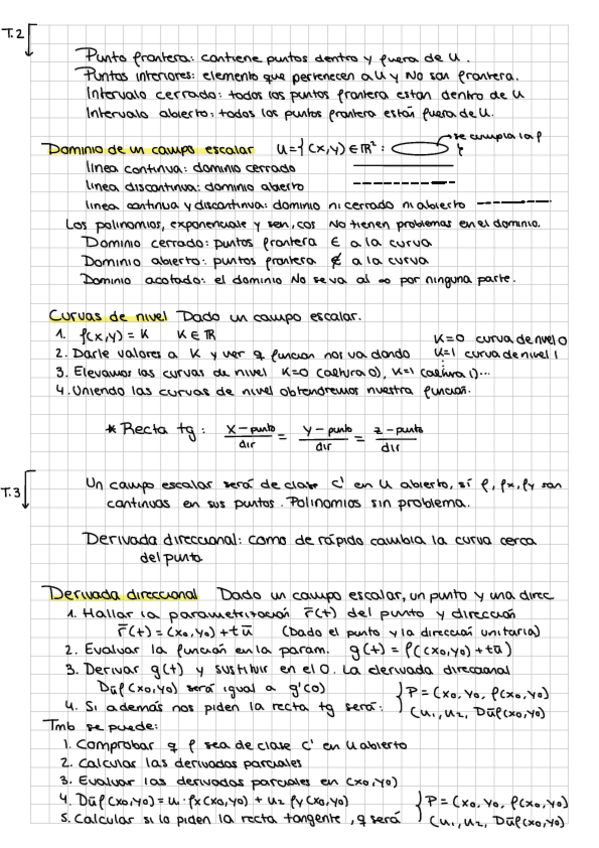 T.2
Punto frontera: contiene puntos dentro y fuera de U.
Puntos interiores: elemento que pertenecen a U y No son frontera.
Intervalo cerrado: todos los puntos frontera estan dentro de U
Intervalo abierto: todos los puntos frontera están fuera de U.
Dominio de un campo escalar U={(x,y) ∈ ℝ²: se cumpla la f }
linea continua: dominio cerrado
linea discontinua: dominio abierto
linea continua y discontinua: dominio ni cerrado ni abierto
Los polinomios, exponenciale y sen, cos No tienen problemas en el dominio.
Dominio cerrado: puntos frontera ∈ a la curva
Dominio abierto: puntos frontera ∉ a la curva
Dominio acotado: el dominio No se va al ∞ por ninguna parte.
Curvas de nivel Dado un campo escalar.
1. f(x,y) = K K ∈ ℝ
K=0 curva de nivel 0
2. Darle valores a K y ver q funcion nos va dando K=1 curva de nivel 1
3. Elevamos las curvas de nivel K=0 (altura 0), K=1 (altura 1)...
4. Uniendo las curvas de nivel obtendremos nuestra función.
* Recta tg: x-punto/dir = y-punto/dir = z-punto/dir
T.3
Un campo escalar será de clase C' en U abierto, sí f, fx, fy son
continuas en sus puntos. Polinomios sin problema.
Derivada direccional: como de rápido cambia la curva cerca
del punto
Derivada direccional Dado un campo escalar, un punto y una direc
1. Hallar la parametrización r̄(t) del punto y dirección
r̄(t) = (x₀,y₀) + t ū (Dado el punto y la dirección unitaria)
2. Evaluar la función en la param. g(t) = f((x₀,y₀) + tū)
3. Derivar g(t) y sustituir en el 0. La derivada direccional
Dūf(x₀,y₀) será igual a g'(0)
4. Si además nos piden la recta tg será: { P = (x₀, y₀, f(x₀,y₀)
(u₁, u₂, Dūf(x₀,y₀)
Tmb se puede:
1. Comprobar q f sea de clase C' en U abierto
2. Calcular las derivadas parciales
3. Evaluar las derivadas parciales en (x₀,y₀)
4. Dūf(x₀,y₀) = u₁·fx(x₀,y₀) + u₂ fy(x₀,y₀) { P = (x₀, y₀, f(x₀,y₀)
5. Calcular si lo piden la recta tangente, q será (u₁, u₂, Dūf(x₀,y₀)